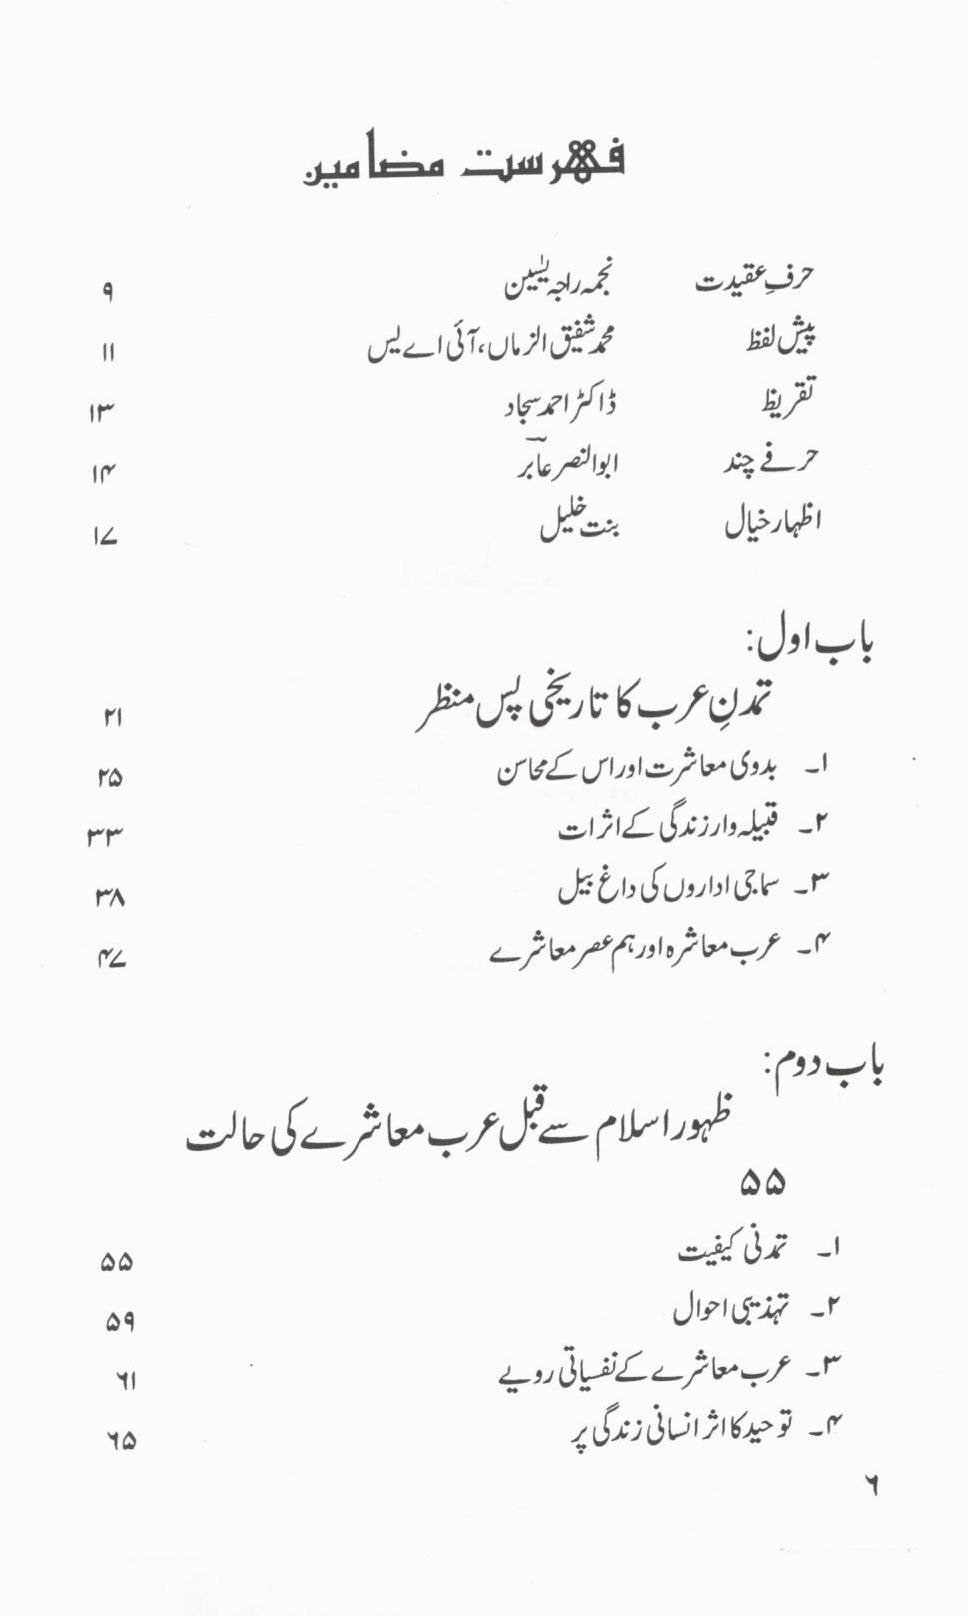 فہرست مضامین
حرفِ عقیدت نجمہ راجہ یٰسین ۹
پیش لفظ محمد شفیق الزماں، آئی اے ایس ۱۱
تقریظ ڈاکٹر احمد سجاد ۱۳
حرفے چند ابوالنصر عابر ۱۴
اظہار خیال بنت خلیل ۱۷
باب اول:
تمدنِ عرب کا تاریخی پس منظر ۲۱
۱۔ بدوی معاشرت اور اس کے محاسن ۲۵
۲۔ قبیلہ وار زندگی کے اثرات ۳۳
۳۔ سماجی اداروں کی داغ بیل ۳۸
۴۔ عرب معاشرہ اور ہم عصر معاشرے ۴۷
باب دوم:
ظہور اسلام سے قبل عرب معاشرے کی حالت
۵۵
۱۔ تمدنی کیفیت ۵۵
۲۔ تہذیبی احوال ۵۹
۳۔ عرب معاشرے کے نفسیاتی رویے ۶۱
۴۔ توحید کا اثر انسانی زندگی پر ۶۵
۶